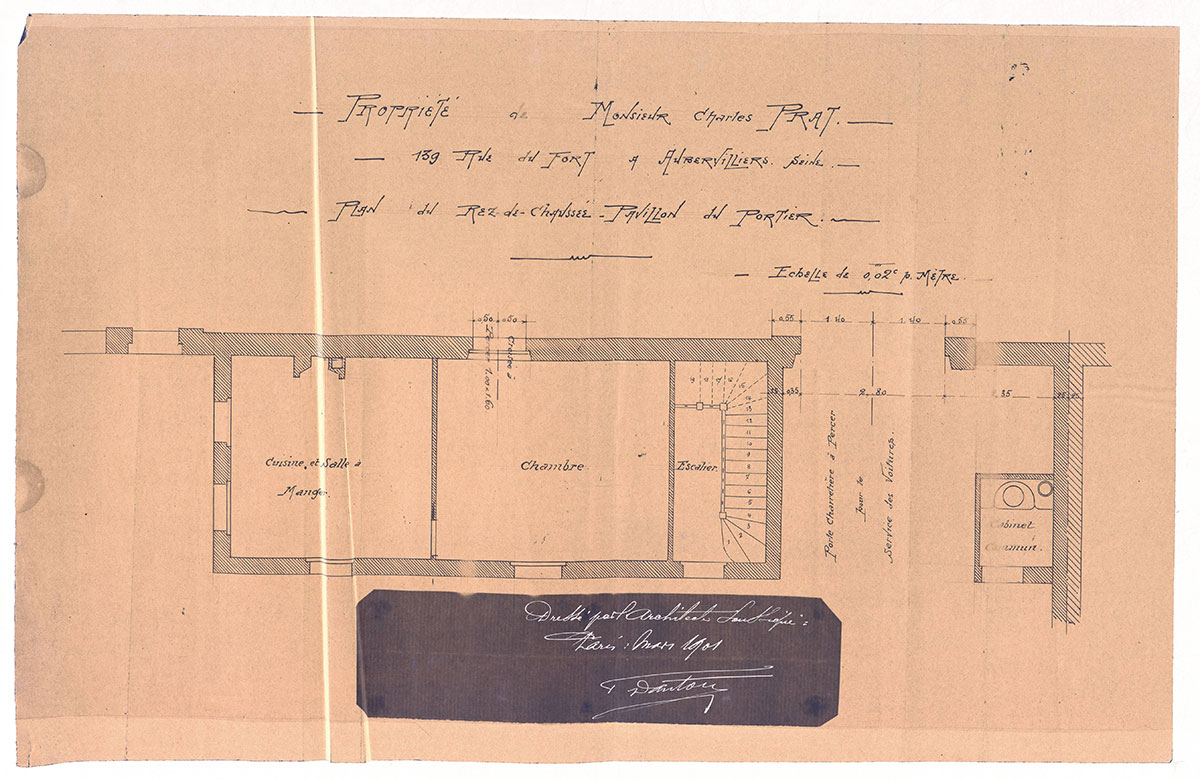 — Propriété de Monsieur Charles PRAT. —
— 139 Rue du Fort à Aubervilliers. Seine. —
— Plan du Rez-de-Chaussée - Pavillon du Portier. —
— Echelle de 0,02c p. Mètre.
0,50 0,50
Croisée à
Percer 1.00 x 1.60
0,55 1.40 1.40 0,55
0,35 2.80
Cuisine et Salle à
Manger
Chambre
Escalier
Porte Charretière à Percer
pour le
Service des Voitures.
Cabinet
Commun.
Dressé par l'Architecte Soussigné:
Paris: Mars 1901
Danton